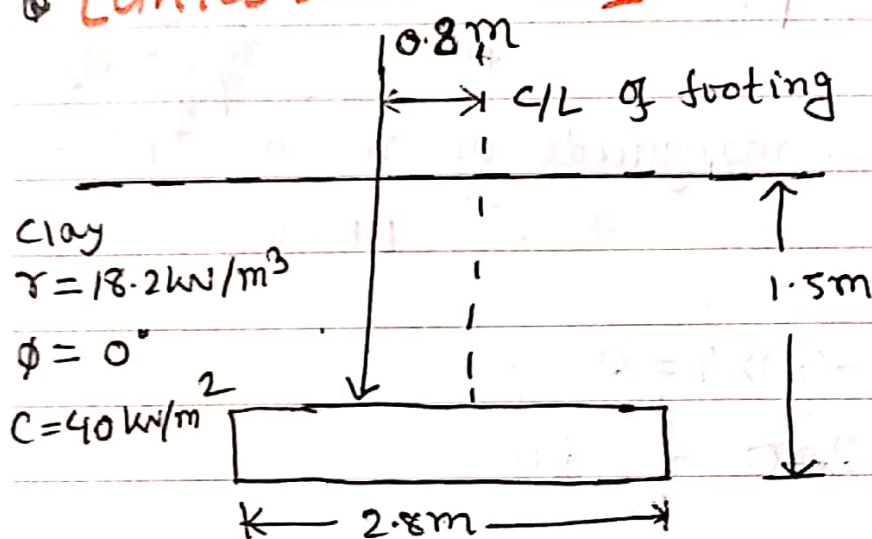 0.8m
C/L of footing
Clay
γ = 18.2 kN/m³
1.5m
φ = 0°
C = 40 kN/m²
2.8m